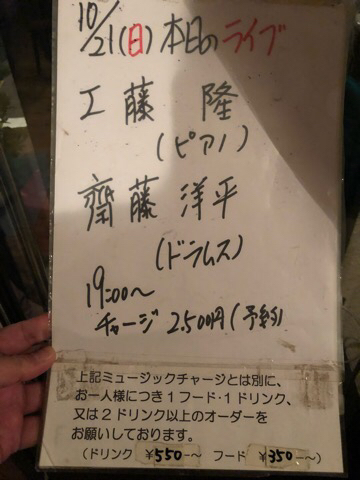 10/21(日)本日のライブ
工藤 隆
(ピアノ)
齋藤 洋平
(ドラムス)
19:00〜
チャージ 2,500円(予約)
上記ミュージックチャージとは別に、
お一人様につき1フード・1ドリンク、
又は2ドリンク以上のオーダーを
お願いしております。
(ドリンク ¥550─〜 フード ¥350─〜)